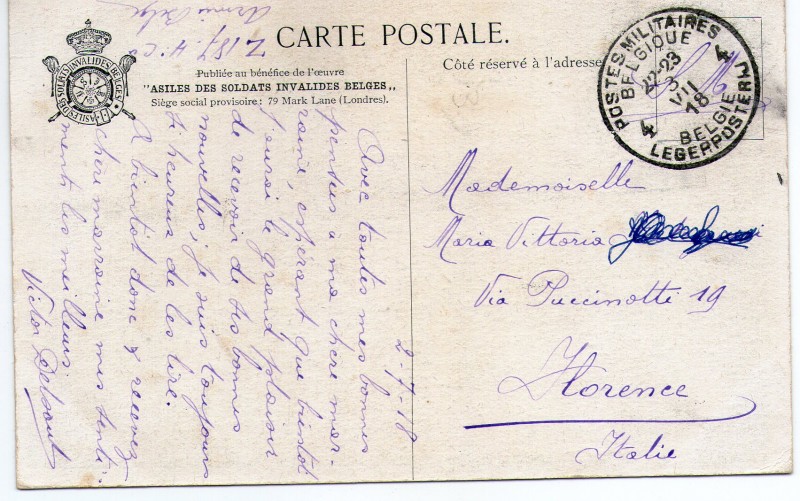 Z 187. 4e Co
Armée Belge
CARTE POSTALE.
Publiée au bénéfice de l'œuvre
"ASILES DES SOLDATS INVALIDES BELGES,,
Siège social provisoire : 79 Mark Lane (Londres).
Côté réservé à l'adresse
S. M.
POSTES MILITAIRES
BELGIQUE
22-23
3
VII
18
4 4
BELGIE
LEGERPOSTERIJ
ASILES DES SOLDATS INVALIDES BELGES
2-7-18
Avec toutes mes bonnes
pensées à ma chère mar-
raine, espérant que bientôt
j'aurai le grand plaisir
de recevoir de ses bonnes
nouvelles; je suis toujours
si heureux de les lire.
A bientôt donc & recevez
chère marraine mes senti-
ments les meilleurs.
Victor
Mademoiselle
Maria Vittoria
Via Puccinotti 19
Florence
Italie